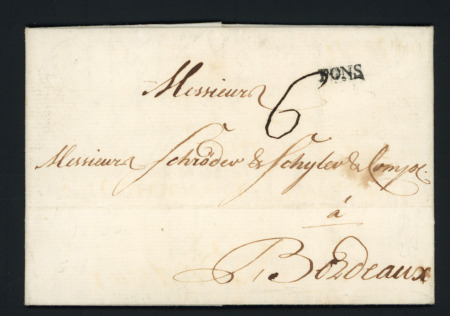 PONS
Messieurs
6
Messieurs Schröder & Schyler & Comp.
à
Bordeaux